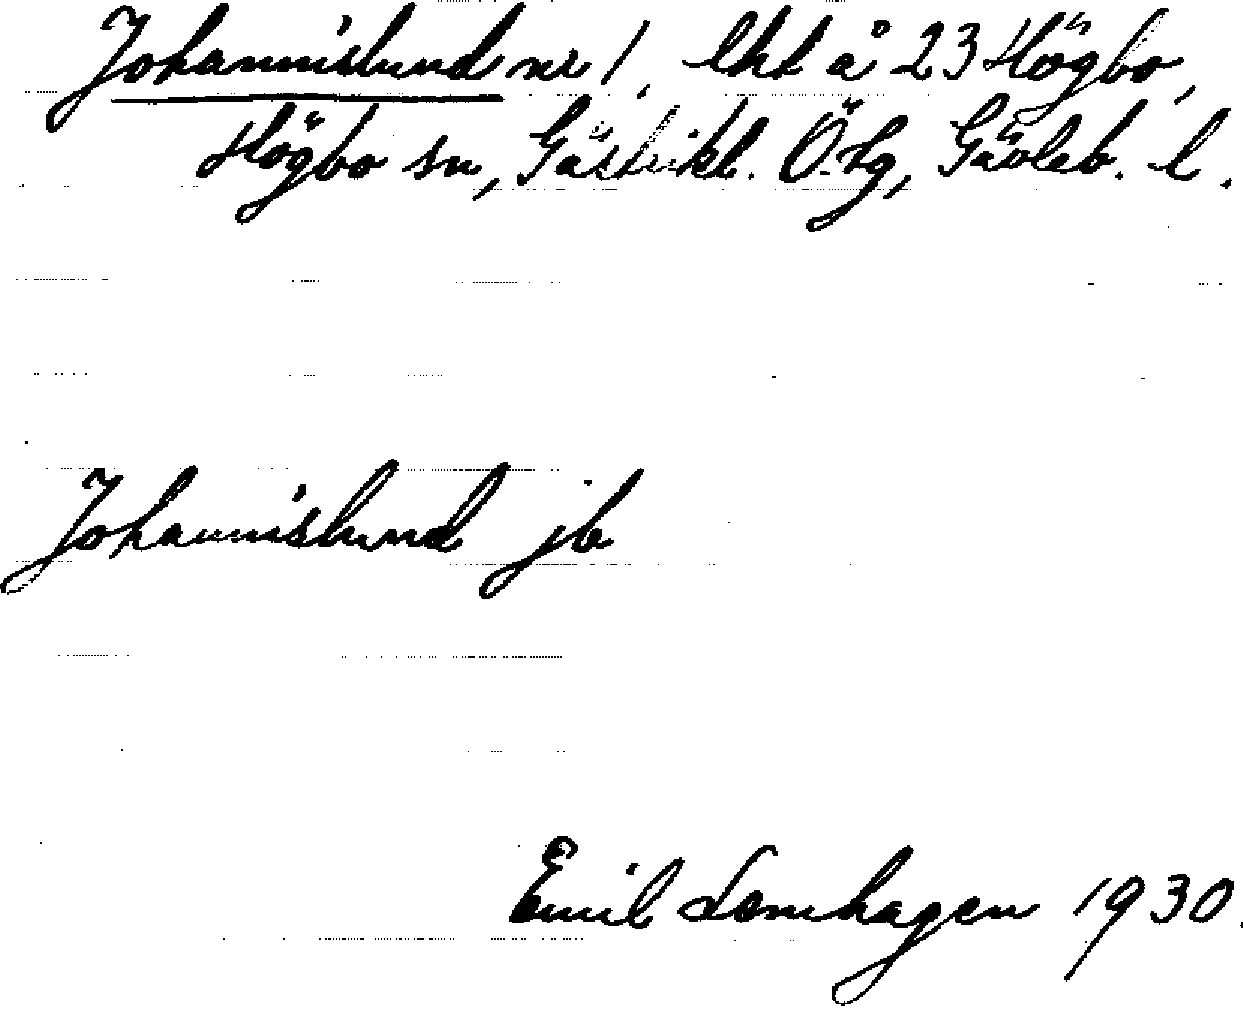 Johannislund nr 1, lht å 23 Högbo,
Högbo sn, Gästrikl. Ö. tg, Gävleb. l.
Johannislund jb
Emil Lomhagen 1930.